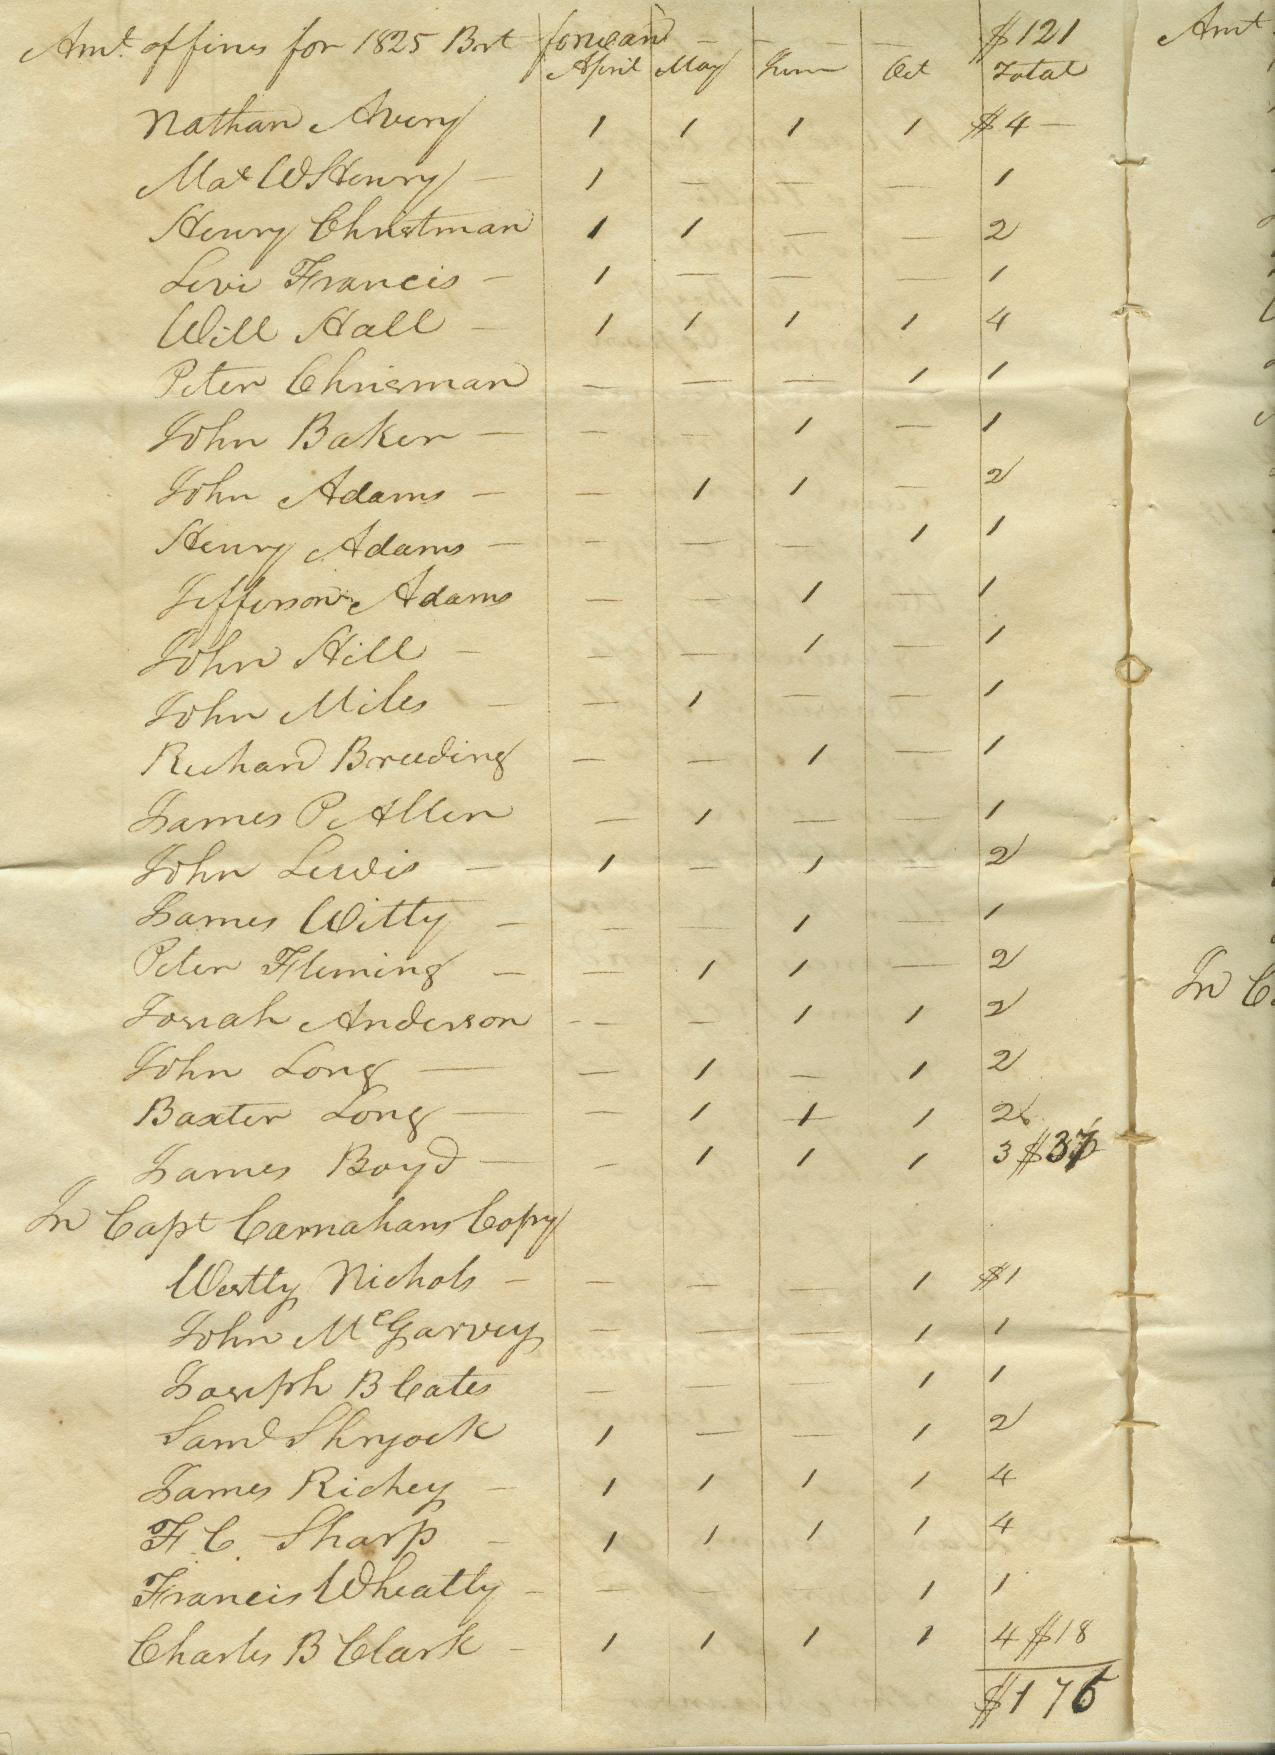 Amt. of fines for 1825 Brt forward - - - - $121
April May June Oct Total
Nathan Avery 1 1 1 1 $4 -
Mat W Henry - 1 - - - 1
Henry Christman 1 1 - - 2
Levi Francis - 1 - - - 1
Will Hall - 1 1 1 1 4
Peter Chrisman - - - 1 1
John Baker - - - 1 - 1
John Adams - - 1 1 - 2
Henry Adams - - - - 1 1
Jefferson Adams - - 1 - 1
John Hill - - - 1 - 1
John Miles - - 1 - - 1
Richard Breeding - - 1 - 1
James P Allen - 1 - - 1
John Lewis - 1 - 1 - 2
James Witty - - - 1 - 1
Peter Fleming - - 1 1 - 2
Josiah Anderson - - 1 1 2
John Long - - 1 - 1 2
Baxter Long - - 1 1 1 2
James Boyd - - 1 1 1 3 $37
In Capt Carnahans Copy
Westly Nichols - - - 1 $1
John McGarvey - - - 1 1
Joseph B Cates - - - 1 1
Saml Shryock 1 - - 1 2
James Richey - 1 1 1 1 4
F C Sharp - 1 1 1 1 4
Francis Wheatly - - - 1 1
Charles B Clark - 1 1 1 1 4 $18
$176
Amt
In C